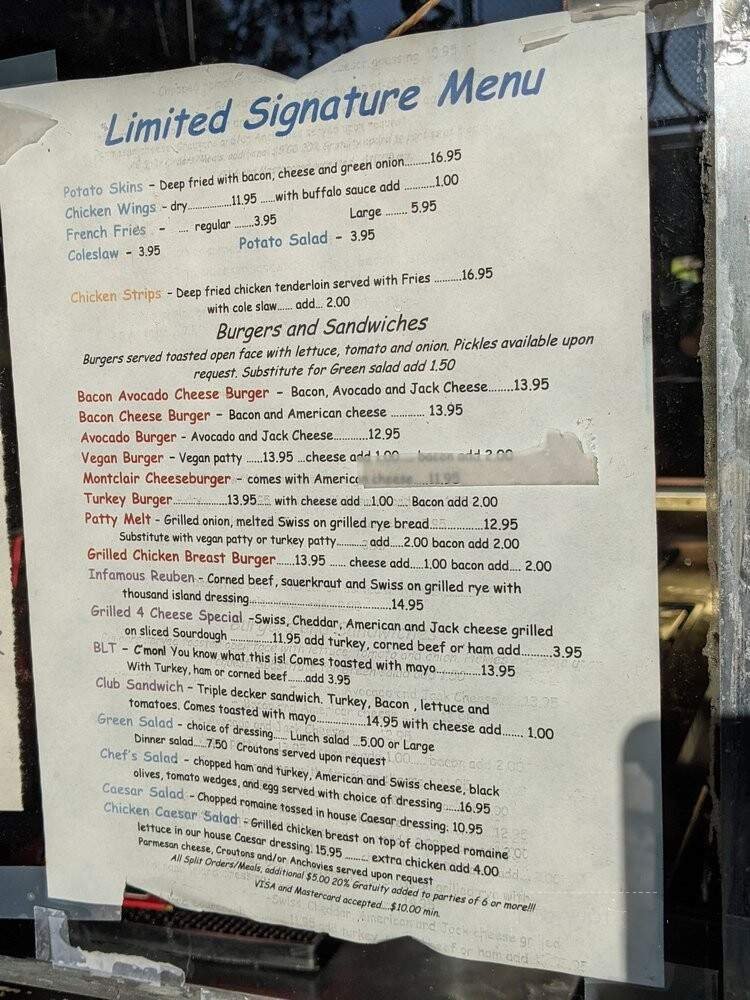 Limited Signature Menu
Potato Skins - Deep fried with bacon, cheese and green onion.........16.95
Chicken Wings - dry...............11.95 .....with buffalo sauce add ..........1.00
French Fries - .... regular .......3.95 Large ........ 5.95
Coleslaw - 3.95 Potato Salad - 3.95
Chicken Strips - Deep fried chicken tenderloin served with Fries ..........16.95
with cole slaw...... add... 2.00
Burgers and Sandwiches
Burgers served toasted open face with lettuce, tomato and onion. Pickles available upon
request. Substitute for Green salad add 1.50
Bacon Avocado Cheese Burger - Bacon, Avocado and Jack Cheese.......13.95
Bacon Cheese Burger - Bacon and American cheese ............ 13.95
Avocado Burger - Avocado and Jack Cheese...........12.95
Vegan Burger - Vegan patty ......13.95 ...cheese add 1.00.... bacon add 2.00
Montclair Cheeseburger - comes with American cheese....11.95
Turkey Burger..................13.95 with cheese add ...1.00 .... Bacon add 2.00
Patty Melt - Grilled onion, melted Swiss on grilled rye bread..................12.95
Substitute with vegan patty or turkey patty.......... add.....2.00 bacon add 2.00
Grilled Chicken Breast Burger......13.95 ...... cheese add.....1.00 bacon add.... 2.00
Infamous Reuben - Corned beef, sauerkraut and Swiss on grilled rye with
thousand island dressing...............................................14.95
Grilled 4 Cheese Special -Swiss, Cheddar, American and Jack cheese grilled
on sliced Sourdough ..............11.95 add turkey, corned beef or ham add..........3.95
BLT - C'mon! You know what this is! Comes toasted with mayo...............13.95
With Turkey, ham or corned beef......add 3.95
Club Sandwich - Triple decker sandwich. Turkey, Bacon , lettuce and
tomatoes. Comes toasted with mayo.................14.95 with cheese add....... 1.00
Green Salad - choice of dressing..... Lunch salad ...5.00 or Large
Dinner salad.....7.50 Croutons served upon request
Chef's Salad - chopped ham and turkey, American and Swiss cheese, black
olives, tomato wedges, and egg served with choice of dressing .....16.95
Caesar Salad - Chopped romaine tossed in house Caesar dressing. 10.95
Chicken Caesar Salad - Grilled chicken breast on top of chopped romaine
lettuce in our house Caesar dressing. 15.95 ......... extra chicken add 4.00
Parmesan cheese, Croutons and/or Anchovies served upon request
All Split Orders/Meals, additional $5.00 20% Gratuity added to parties of 6 or more!!!
VISA and Mastercard accepted....$10.00 min.